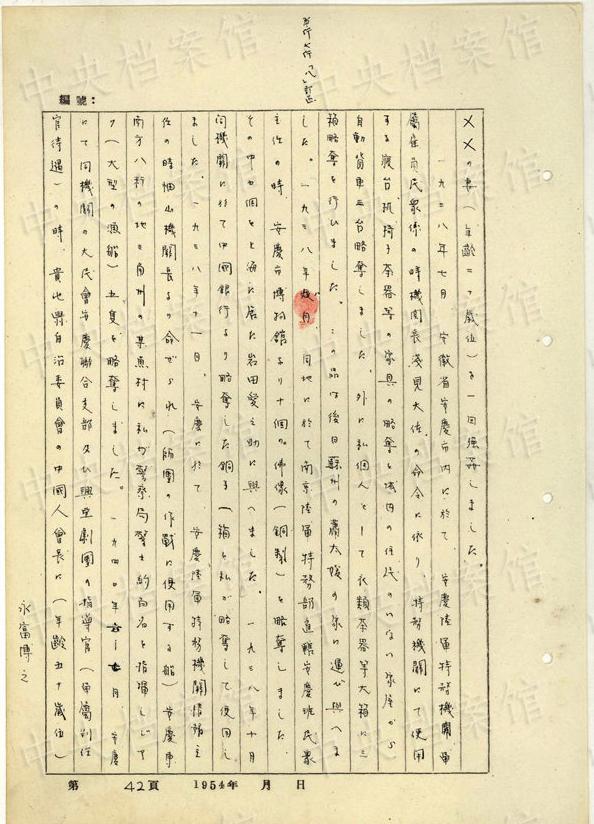 編號：
××の妻（年齢二〇歳位）を一回強姦しました。
一九三八年七月 安徽省安慶市内に於て 安慶陸軍特務機關軍
属 員民衆係の時機関長浅見大佐の命令に依り、特務機關にて使用
する寝台机、椅子茶器等の家具の略奪を城内の住民のいない家屋から
自動貨車三台略奪しました。外に私個人として衣類茶器等大箱に三
箱略奪を行ひました。この品は後日蘇州の蕭大嫂の家に運び與へま
した。一九三八年 月、同地に於て南京陸軍特務部直轄安慶班民衆
主任の時、安慶市博物館より十個の佛像（銅製）を略奪しました。
その中五個を上海に居た岩田愛之助に與へました。一九三八年十月
同機關に於て中國銀行より略奪した銅子一箱を私が略奪して使用し
ました。一九三八年十一月、安慶に於て 安慶陸軍特務機關情報主
任の時 畑山機關長より命ぜられ（師團の作戰に使用する船）安慶市
南方八粁の地 南州の某魚村に私が警察局警士約百名を指揮して
ク（大型の漁船）五隻を略奪しました。一九四〇年 七月、安慶
にて同機關の大民會安慶聯合支部及び興亜劇團の指導官（軍属判任
官待遇）の時、貴池縣自治委員會の中國人會長に（年齢五十歳位）
永富博之
第 42頁 1954年 月 日
中央档案馆